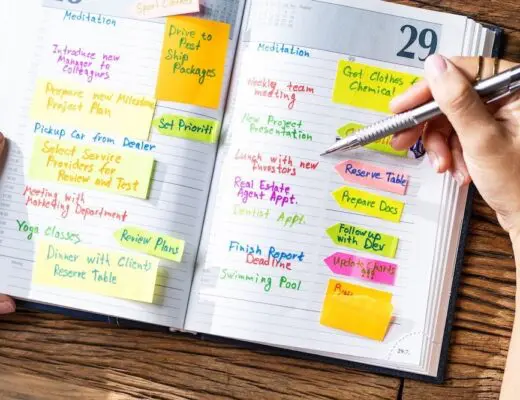 Sport Clothes
Meditation
Drive to
Post
Ship
Packages
Introduce new
Manager to
Colleagues
Prepare new Milestone
Project Plan
Set Prioriti
Pickup Car from Dealer
Select Service
Providers for
Review and Test
Meeting with
Marketing Department
Yoga Classes
Review Plans
Dinner with Clients
Reserve Table
29
Meditation
Got Clothes f
Chemical
Weekly team
meeting
New Project
Presentation
Lunch with new
Investors
Reserve Table
Real Estate
Agent Appt.
Prepare Docs
Dentist Appt.
Follow up
with Dev
Finish Report
Deadline
Update Charts
!!!
Swimming Pool
29.7.